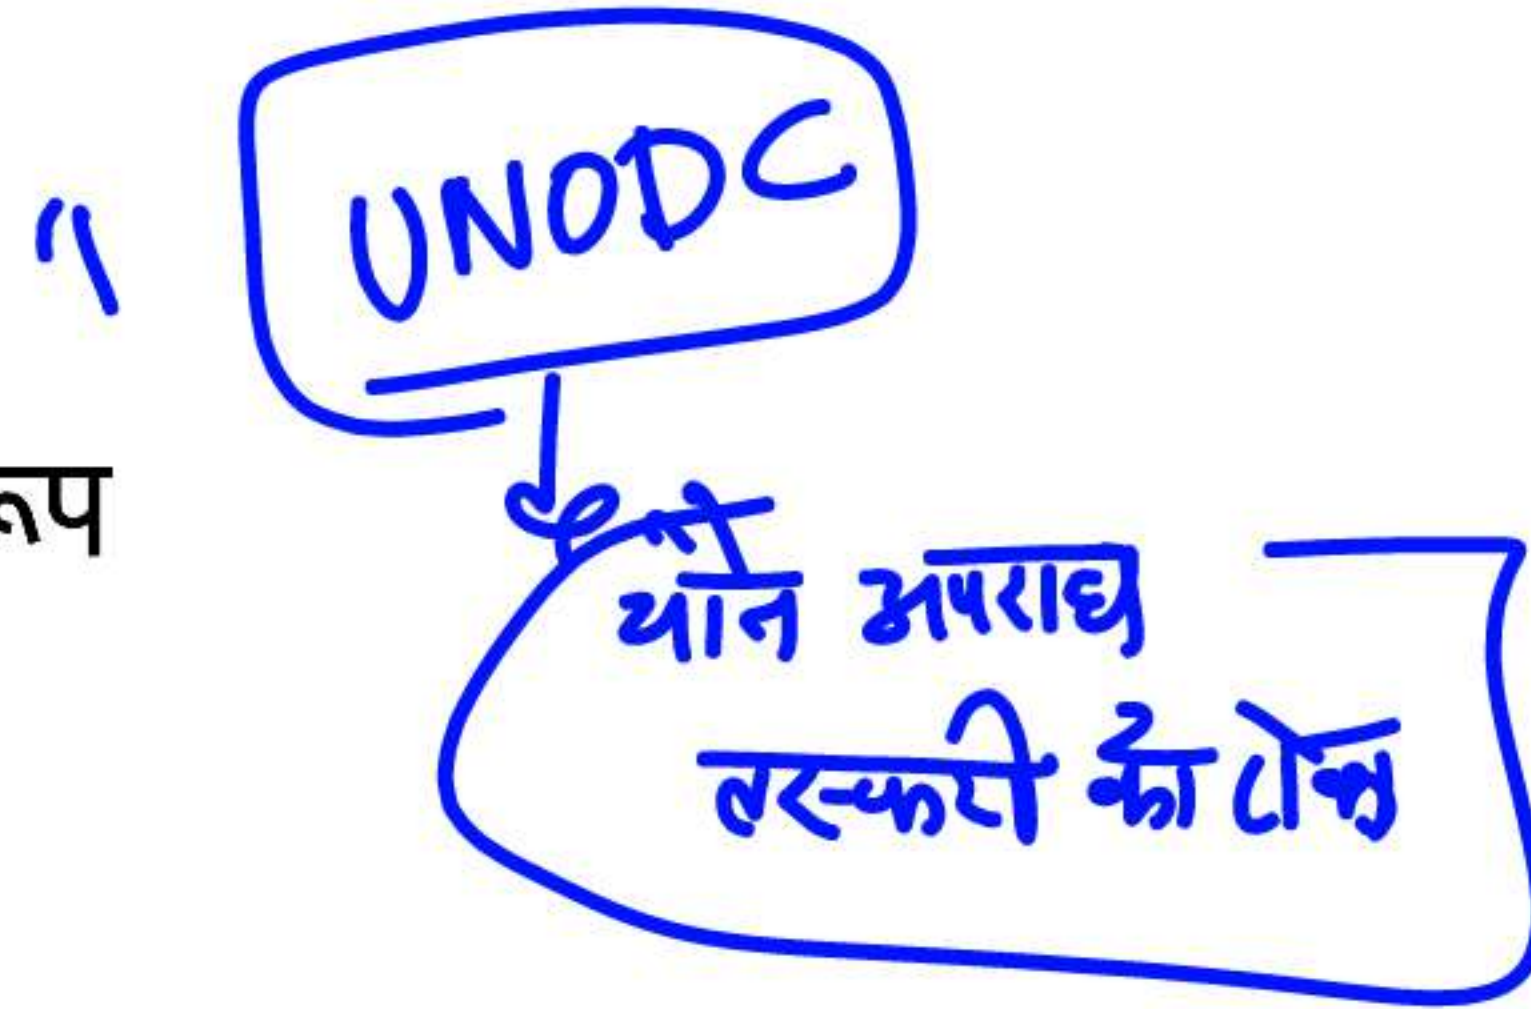 UNODC
रूप
यौन अपराध
तस्करी को रोक